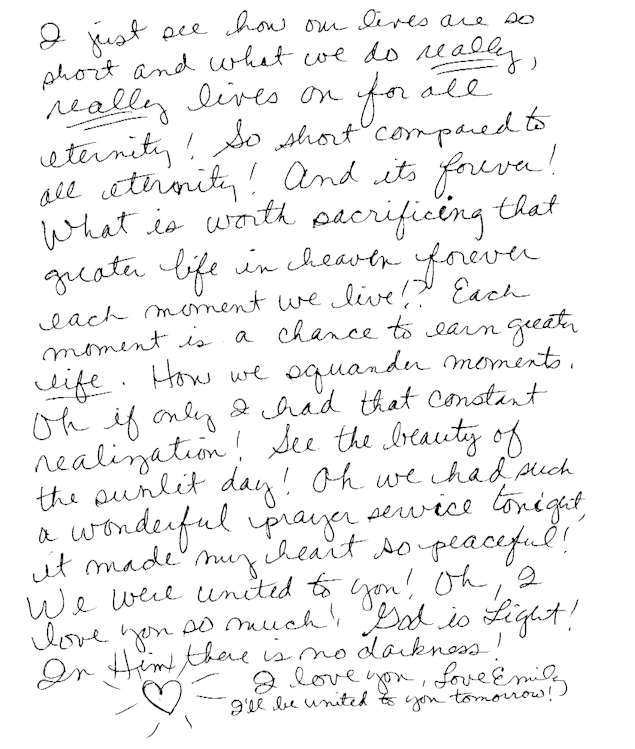 I just see how our lives are so
short and what we do really,
really lives on for all
eternity! So short compared to
all eternity! And its forever!
What is worth sacrificing that
greater life in heaven forever
each moment we live!? Each
moment is a chance to earn greater
life. How we squander moments.
Oh if only I had that constant
realization! See the beauty of
the sunlit day! Oh we had such
a wonderful prayer service tonight,
it made my heart so peaceful!
We were united to you! Oh, I
love you so much! God is Light!
In Him there is no darkness!
I love you, Love Emily
I'll be united to you tomorrow!)